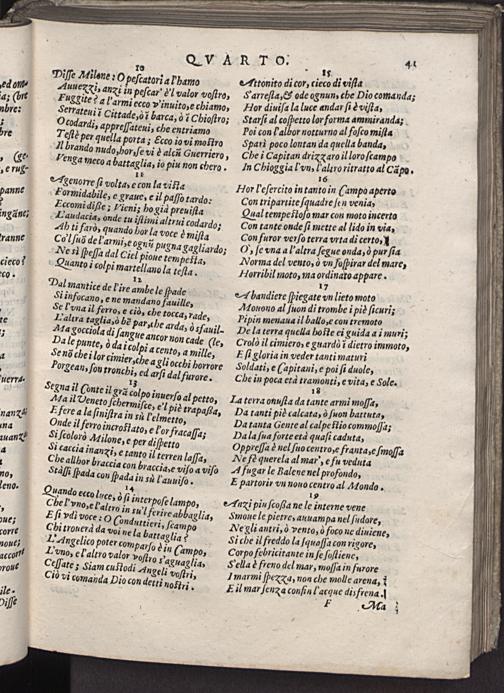 QVARTO.
41
10
Disse Milone: O pescatori a l'hamo
Auuezzi, anzi in pescar' è'l valor vostro,
Fuggite? a l'armi ecco v'inuito, e chiamo,
Serrateui i Cittade, ò i barca, ò i Chiostro;
O codardi, appressateui, che entriamo
Testè per quella porta; Ecco io vi mostro
Il brando nudo, hor se vi è alcũ Guerriero,
Venga meco a battaglia, io piu non chero.
11
Agenorre si volta, e con la vista
Formidabile, e graue, e il passo tardo:
Eccomi disse; Vieni; ho già preuista
L'audacia, onde tu istimi altrui codardo;
Ah ti farò, quando hor la voce è mista
Co'l suõ de l'armi, e ognũ pugna gagliardo;
Ne sì spessa dal Ciel pioue tempesta,
Quanto i colpi martellano la testa.
12
Dal mantice de l'ire ambe le spade
Si infocano, e ne mandano fauille,
Se l'vna il ferro, e ciò, che tocca, rade,
L'altra taglia, ò bẽ par, che arda, ò sfauil-
Ma gocciola di sangue ancor non cade (le,
Da le punte, ò da i colpi a cento, a mille,
Se nõ che i lor cimier, che a gli occhi horrore
Porgean, son tronchi, ed arsi dal furore.
13
Segna il Conte il grã colpo inuerso al petto,
Ma il Veneto schermisce, e'l piè trapassa,
E fere a la sinistra in sù l'elmetto,
Onde il ferro incrostato, e l'or fracassa;
Si scolorò Milone, e per dispetto
Si caccia inanzi, e tanto il terren lassa,
Che alhor braccia con braccia, e viso a viso
Stãssi spada con spada in sù l'auuiso.
14
Quando ecco luce, ò si interpose lampo,
Che l'vno, e l'altro in su'l ferire abbaglia,
E si vdì voce: O Conduttieri, scampo
Chi trouerà da voi ne la battaglia?
L'Angelico poter comparso è in Campo,
L'vno, e l'altro valor vostro s'aguaglia,
Cessate; Siam custodi Angeli vostri,
Ciò vi comanda Dio con detti nostri.
15
Attonito di cor, cieco di vista
S'arresta, & ode ognun, che Dio comanda;
Hor diuisa la luce andar si è vista,
Starsi al cospetto lor forma ammiranda;
Poi con l'albor notturno al fosco mista
Sparì poco lontan da quella banda,
Che i Capitan drizzaro il loro scampo
In Chioggia l'vn, l'altro ritratto al Cãpo.
16
Hor l'esercito in tanto in Campo aperto
Con tripartite squadre sen venia,
Qual tempestoso mar con moto incerto
Con tante onde si mette al lido in via,
Con furor verso terra vrta di certo,
O', se vna a l'altra segue onda, ò pur sia
Norma del vento, ò vn sospirar del mare,
Horribil moto, ma ordinato appare.
17
A bandiere spiegate vn lieto moto
Mouono al suon di trombe i piè sicuri;
Pipin menaua il ballo, e con tremoto
De la terra quella hoste ei guida a i muri;
Crolò il cimiero, e guardò i dietro immoto,
E si gloria in veder tanti maturi
Soldati, e Capitani, e poi si duole,
Che in poca età tramonti, e vita, e Sole.
18
La terra onusta da tante armi mossa,
Da tanti piè calcata, ò suon battuta,
Da tanta Gente al calpestio commossa;
Da la sua forte età quasi caduta,
Oppressa è nel suo centro, e franta, e smossa
Ne fè querela al mar', e fu veduta
A fugar le Balene nel profondo,
E partorir vn nouo centro al Mondo.
19
Anzi piu scossa ne le interne vene
Smoue le pietre, auuampa nel sudore,
Ne gli antri, ò vento, ò foco ne diuiene,
Sì che il freddo la squassa con rigore,
Corpo febricitante in se sostiene,
S'ella è freno del mar, mossa in furore
I marmi spezza, non che molle arena,
E il mar senza confin l'acque disfrena.
F
Ma